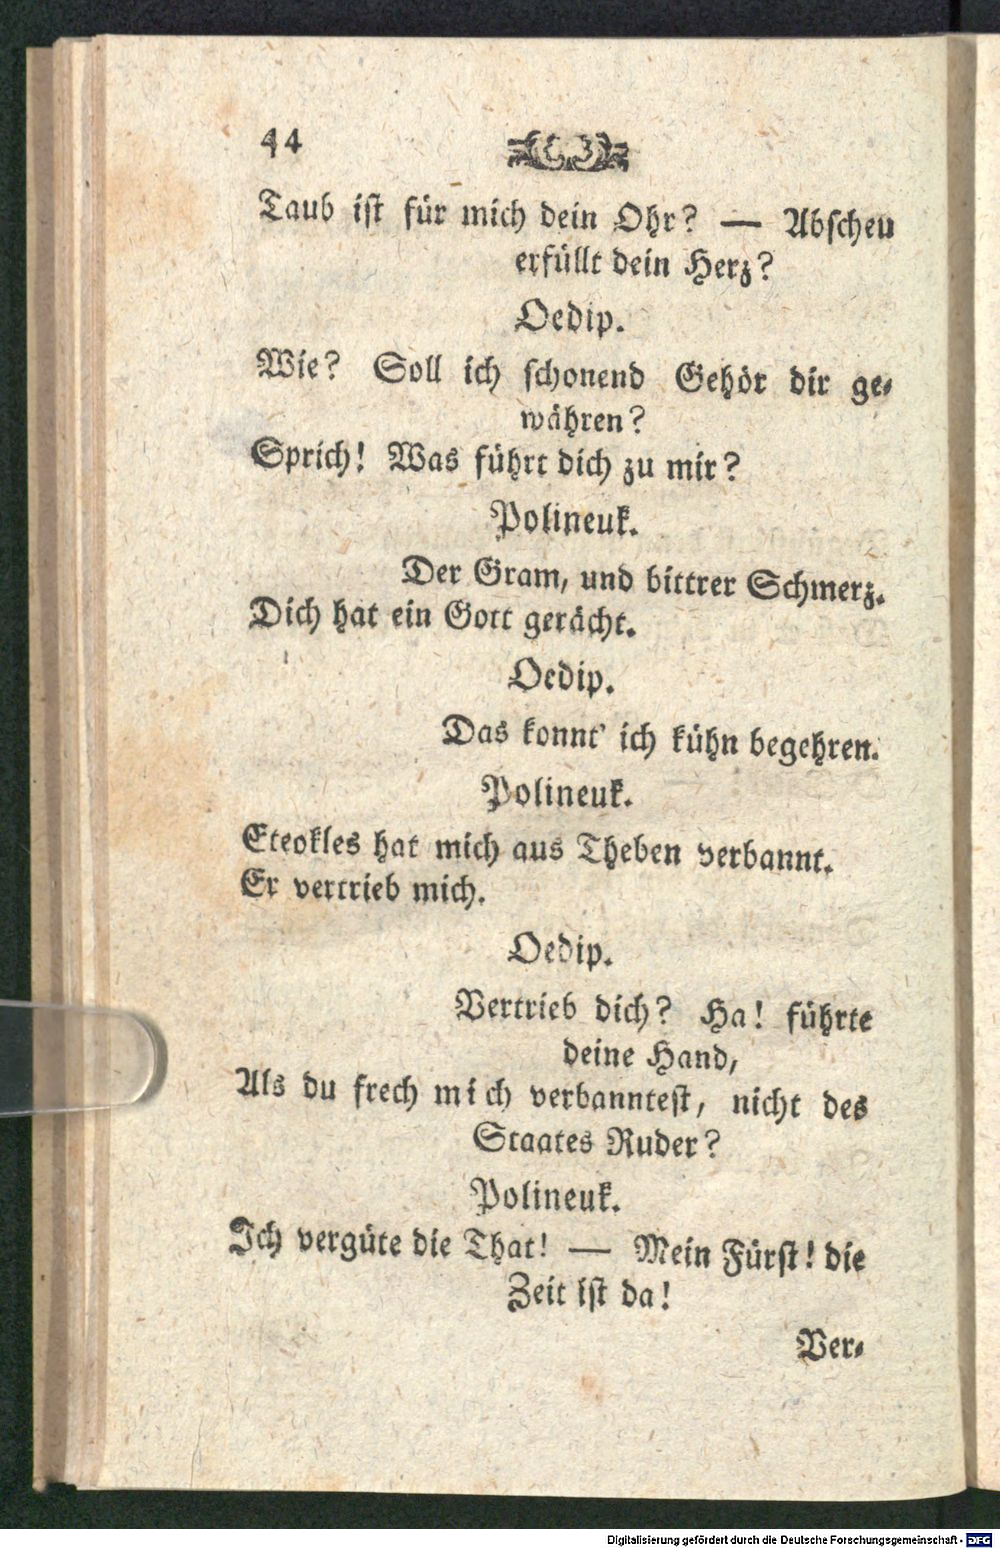 44
Taub ist für mich dein Ohr? — Abscheu
erfüllt dein Herz?
Oedip.
Wie? Soll ich schonend Gehör dir ge-
währen?
Sprich! Was führt dich zu mir?
Polineuk.
Der Gram, und bittrer Schmerz.
Dich hat ein Gott gerächt.
Oedip.
Das konnt' ich kühn begehren.
Polineuk.
Eteokles hat mich aus Theben verbannt.
Er vertrieb mich.
Oedip.
Vertrieb dich? Ha! führte
deine Hand,
Als du frech mich verbanntest, nicht des
Staates Ruder?
Polineuk.
Ich vergüte die That! — Mein Fürst! die
Zeit ist da!
Ver-
Digitalisierung gefördert durch die Deutsche Forschungsgemeinschaft - DFG